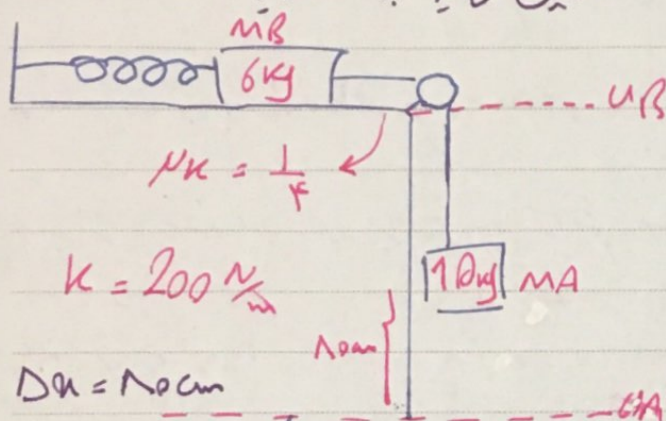 MB
6kg
UB
μk = 1/۴
K = 200 N/m
10kg MA
۸۰cm
Δx = ۸۰cm